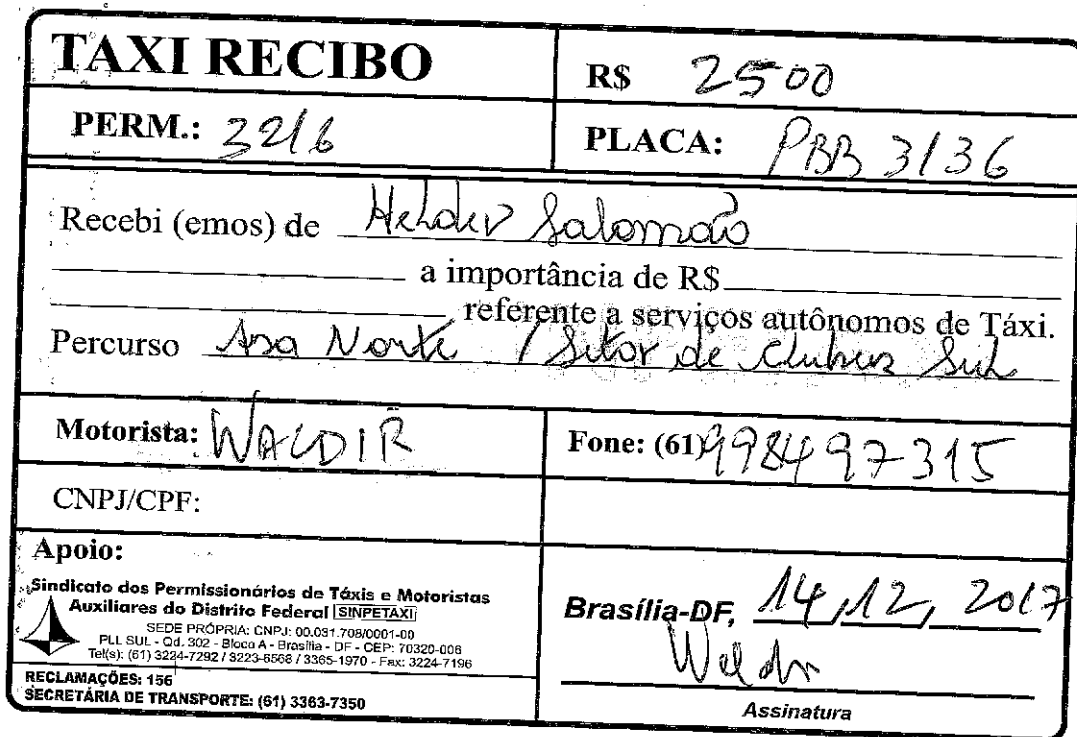 TAXI RECIBO
R$ 2500
PERM.: 3216
PLACA: PBB 3136
Recebi (emos) de Helder Salomão
a importância de R$
referente a serviços autônomos de Táxi.
Percurso Asa Norte / Setor de Clubes Sul
Motorista: WALDIR
Fone: (61) 998497315
CNPJ/CPF:
Apoio:
Sindicato dos Permissionários de Táxis e Motoristas
Auxiliares do Distrito Federal SINPETAXI
SEDE PRÓPRIA: CNPJ: 00.031.708/0001-00
PLL SUL - Qd. 302 - Bloco A - Brasília - DF - CEP: 70320-006
Tel(s): (61) 3224-7292 / 3223-6568 / 3365-1970 - Fax: 3224-7196
RECLAMAÇÕES: 156
SECRETÁRIA DE TRANSPORTE: (61) 3363-7350
Brasília-DF, 14, 12, 2017
Waldir
Assinatura